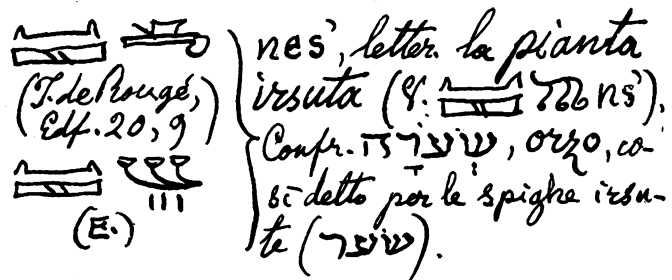 (J. de Rougé,
Edf. 20, 9)
(E.)
nes', letter. la pianta
irsuta (V. ns'),
Confr. שְׂעֹרָה, orzo, co-
sì detto per le spighe irsu-
te (שׂער).